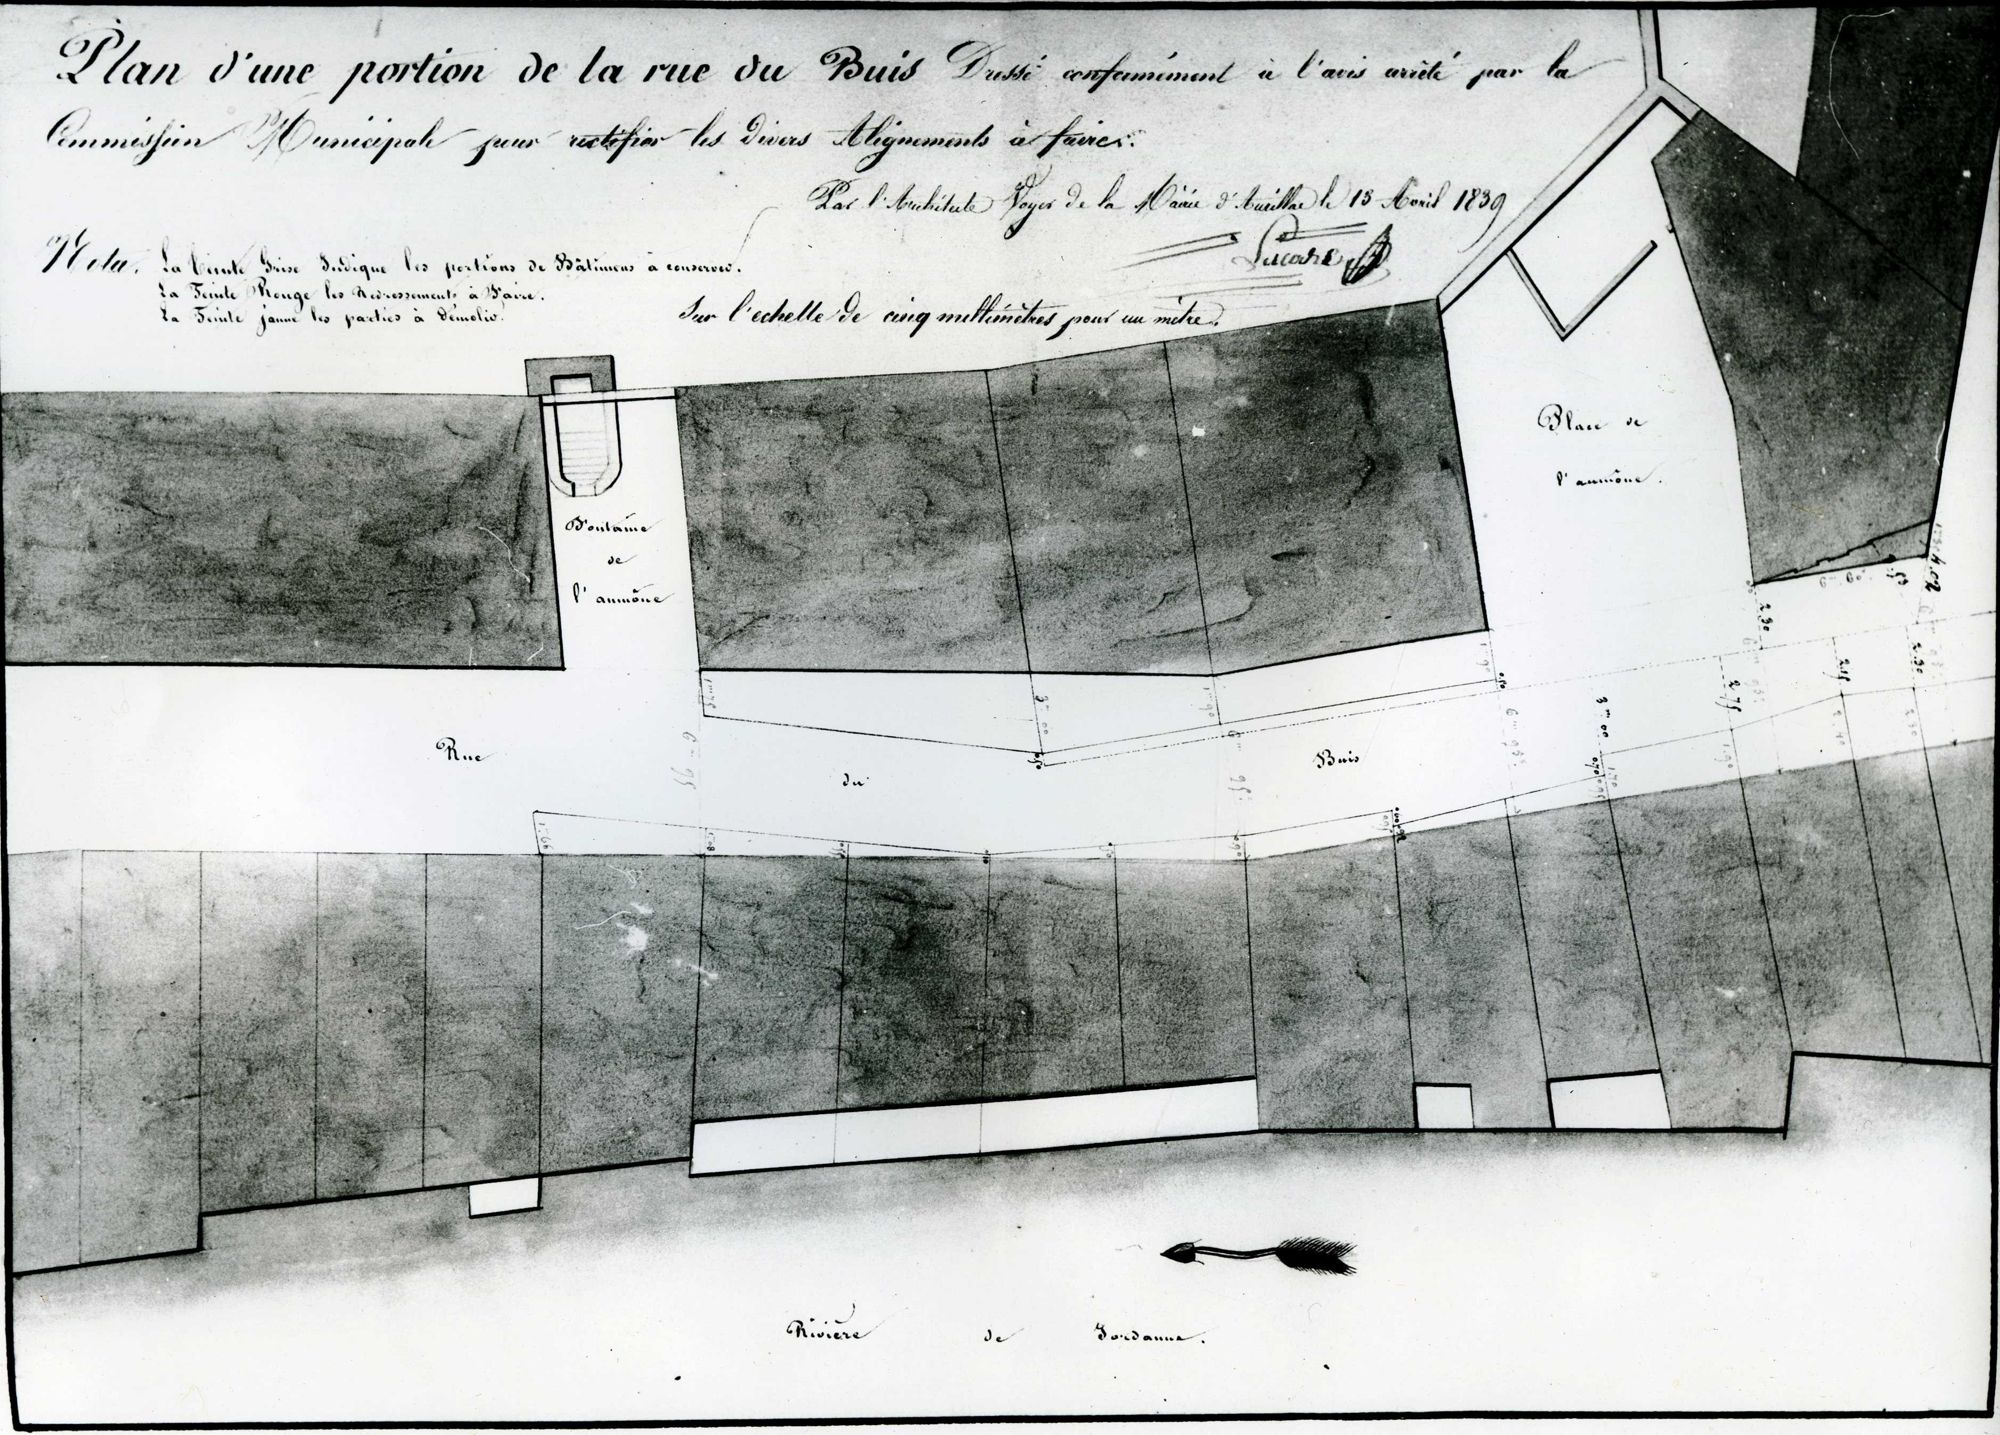 Plan d'une portion de la rue du Buis Dressé conformément à l'avis arrêté par la
Commission Municipale pour rectifier les divers Alignements à faire.
Par l'Architecte Voyer de la Mairie d'Aurillac le 15 Avril 1839
Nota. La Teinte Grise Indique les portions de Bâtimens à conserver.
La Teinte Rouge les Redressements à Faire.
La Teinte jaune les parties à Démolir.
Sur l'echelle de cinq millimètres pour un mètre.
Place de
l'aumône.
Fontaine
de
l'aumône
6m 60
4.02
2.30
1m 75
3m 00
1m 90
1.90
0.50
6m 95
6m 95
6m 95
3m 00
2.75
2.30
Rue
du
Buis
0.50
1.66
0.90
1.90
2.40
2.30
Rivière de Jordanne.